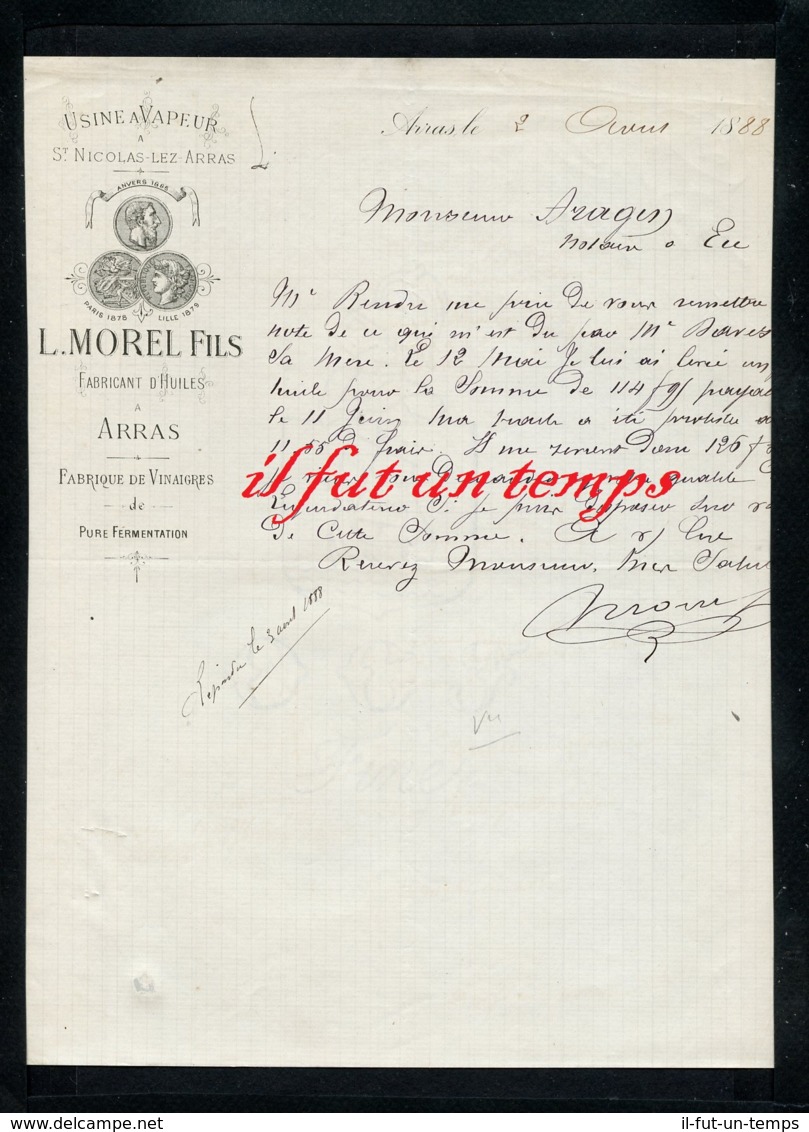 USINE A VAPEUR
A
ST NICOLAS-LEZ-ARRAS
ANVERS 1885
PARIS 1878 LILLE 1879
L. MOREL FILS
FABRICANT D'HUILES
A
ARRAS
FABRIQUE DE VINAIGRES
de
PURE FERMENTATION
Arras le 2 Aout 1888
Monsieur Aragon
Notaire a Eu
Mr Rendu me prie de vous remettre
note de ce qui m'est du par Mr
Sa Mere. Le 12 Mai Je lui ai livré un
huile pour la Somme de 114 f 95
le 11 Juin Ma traite a été
11 55 de frais Il me revient donc 126 f
Je
Liquidateur Si je puis disposer sur
de Cette Somme.
Recevez Monsieur, Mes Salut
il fut un temps
Répondu le 3 aout 1888
Vu
www.delcampe.net
il-fut-un-temps